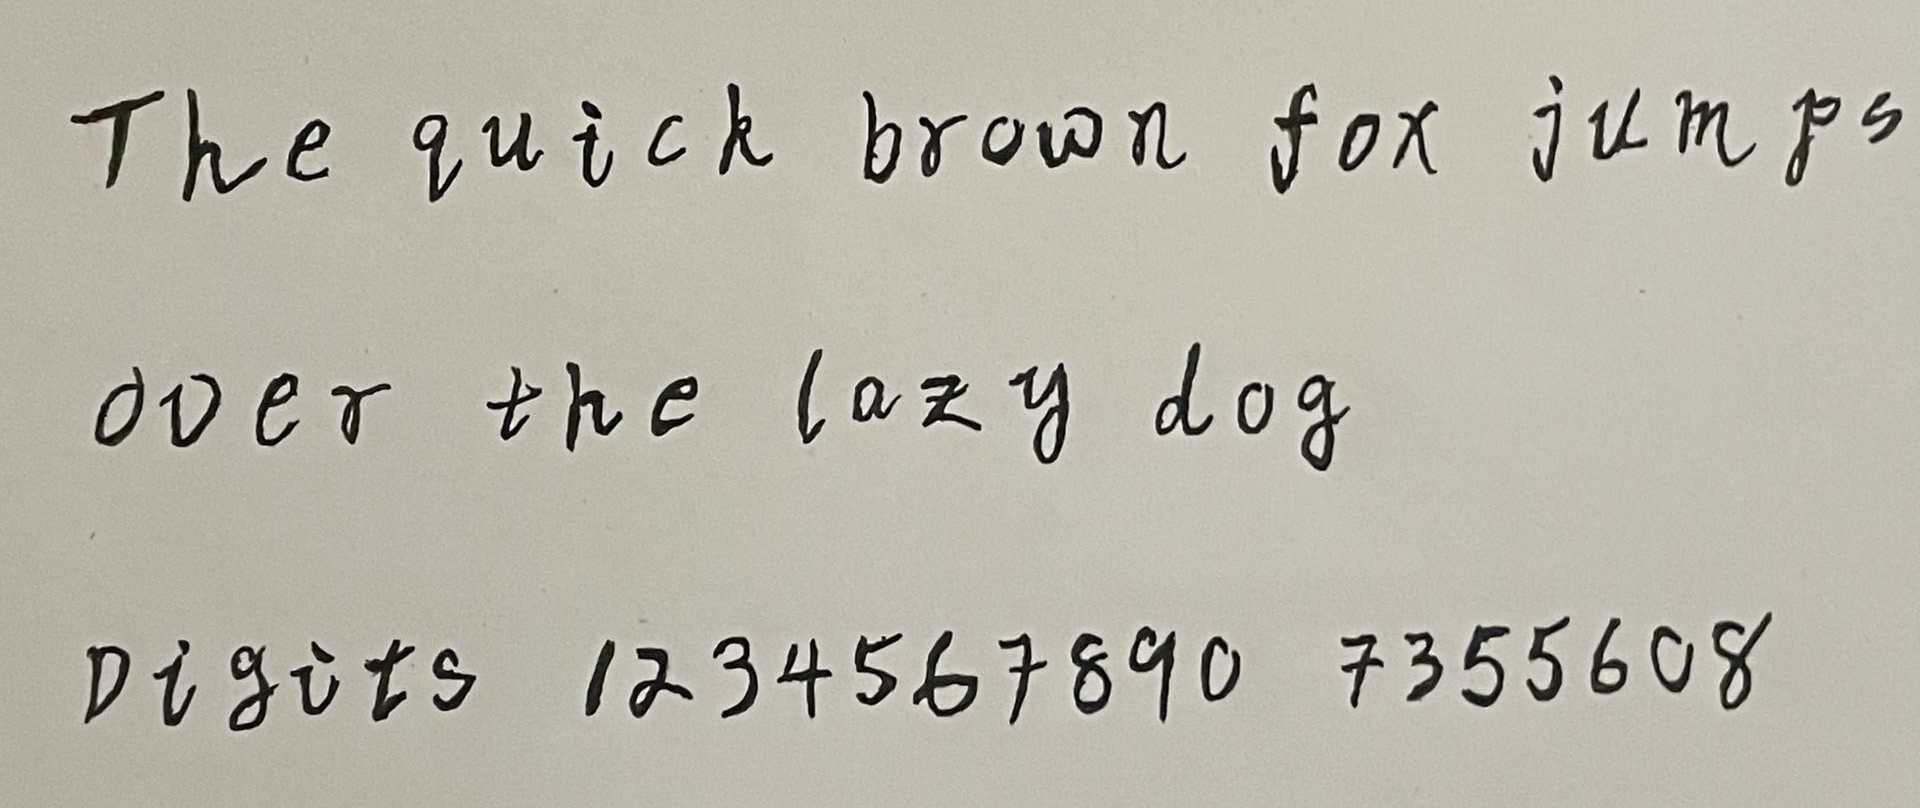 The quick brown fox jumps
over the lazy dog
Digits 1234567890 7355608